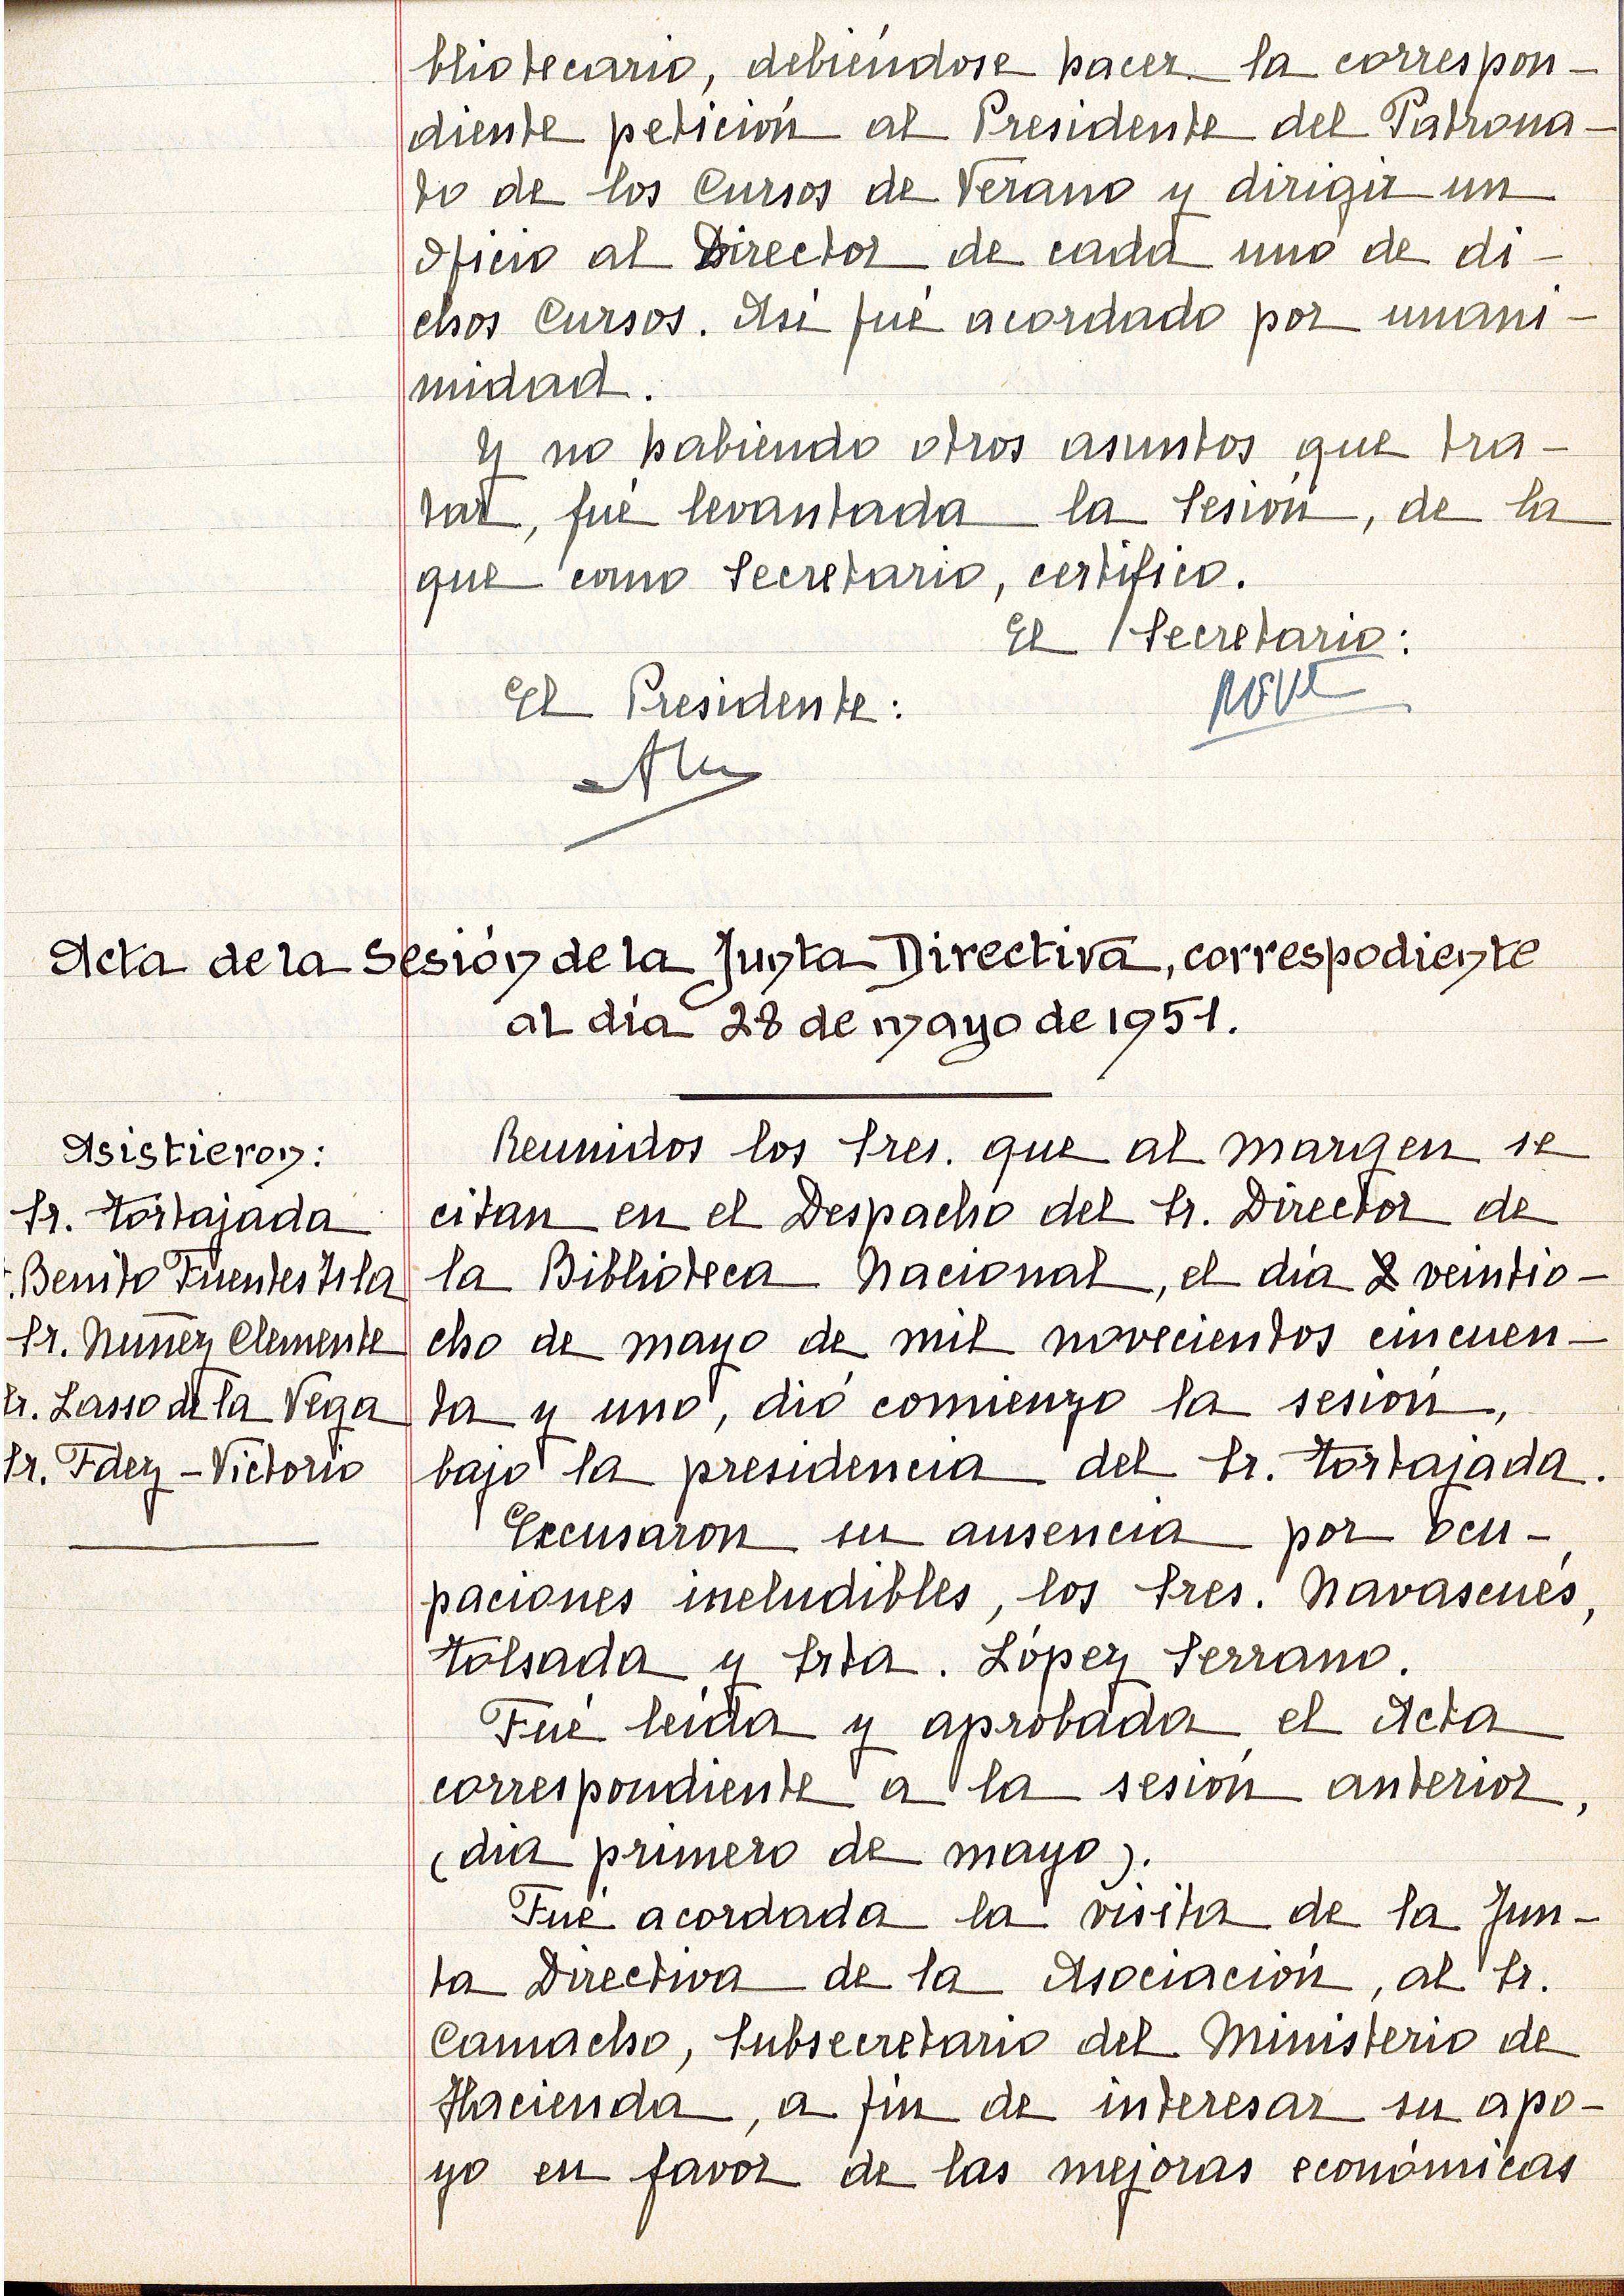 bliotecario, debiéndose hacer la correspon-
diente petición al Presidente del Patrona-
to de los Cursos de Verano y dirigir un
oficio al Director de cada uno de di-
chos Cursos. Así fué acordado por unani-
midad.
Y no habiendo otros asuntos que tra-
tar, fué levantada la Sesión, de la
que como Secretario, certifico.
El Secretario:
El Presidente:
Acta de la Sesión de la Junta Directiva, correspodiente
al día 28 de mayo de 1951.
Asistieron:
Sr. Tortajada
Benito Fuentes Isla
Sr. Nuñez Clemente
Sr. Lasso de la Vega
Sr. Fdez-Victorio
Reunidos los Sres. que al margen se
citan en el Despacho del Sr. Director de
la Biblioteca Nacional, el día veintio-
cho de mayo de mil novecientos cincuen-
ta y uno, dió comienzo la sesión,
bajo la presidencia del Sr. Tortajada.
Excusaron su ausencia por ocu-
paciones ineludibles, los Sres. Navascués,
Tolsada y Srta. López Serrano.
Fué leída y aprobada el Acta
correspondiente a la sesión anterior,
(día primero de mayo).
Fué acordada la visita de la Jun-
ta Directiva de la Asociación, al Sr.
Camacho, Subsecretario del Ministerio de
Hacienda, a fin de interesar su apo-
yo en favor de las mejoras económicas